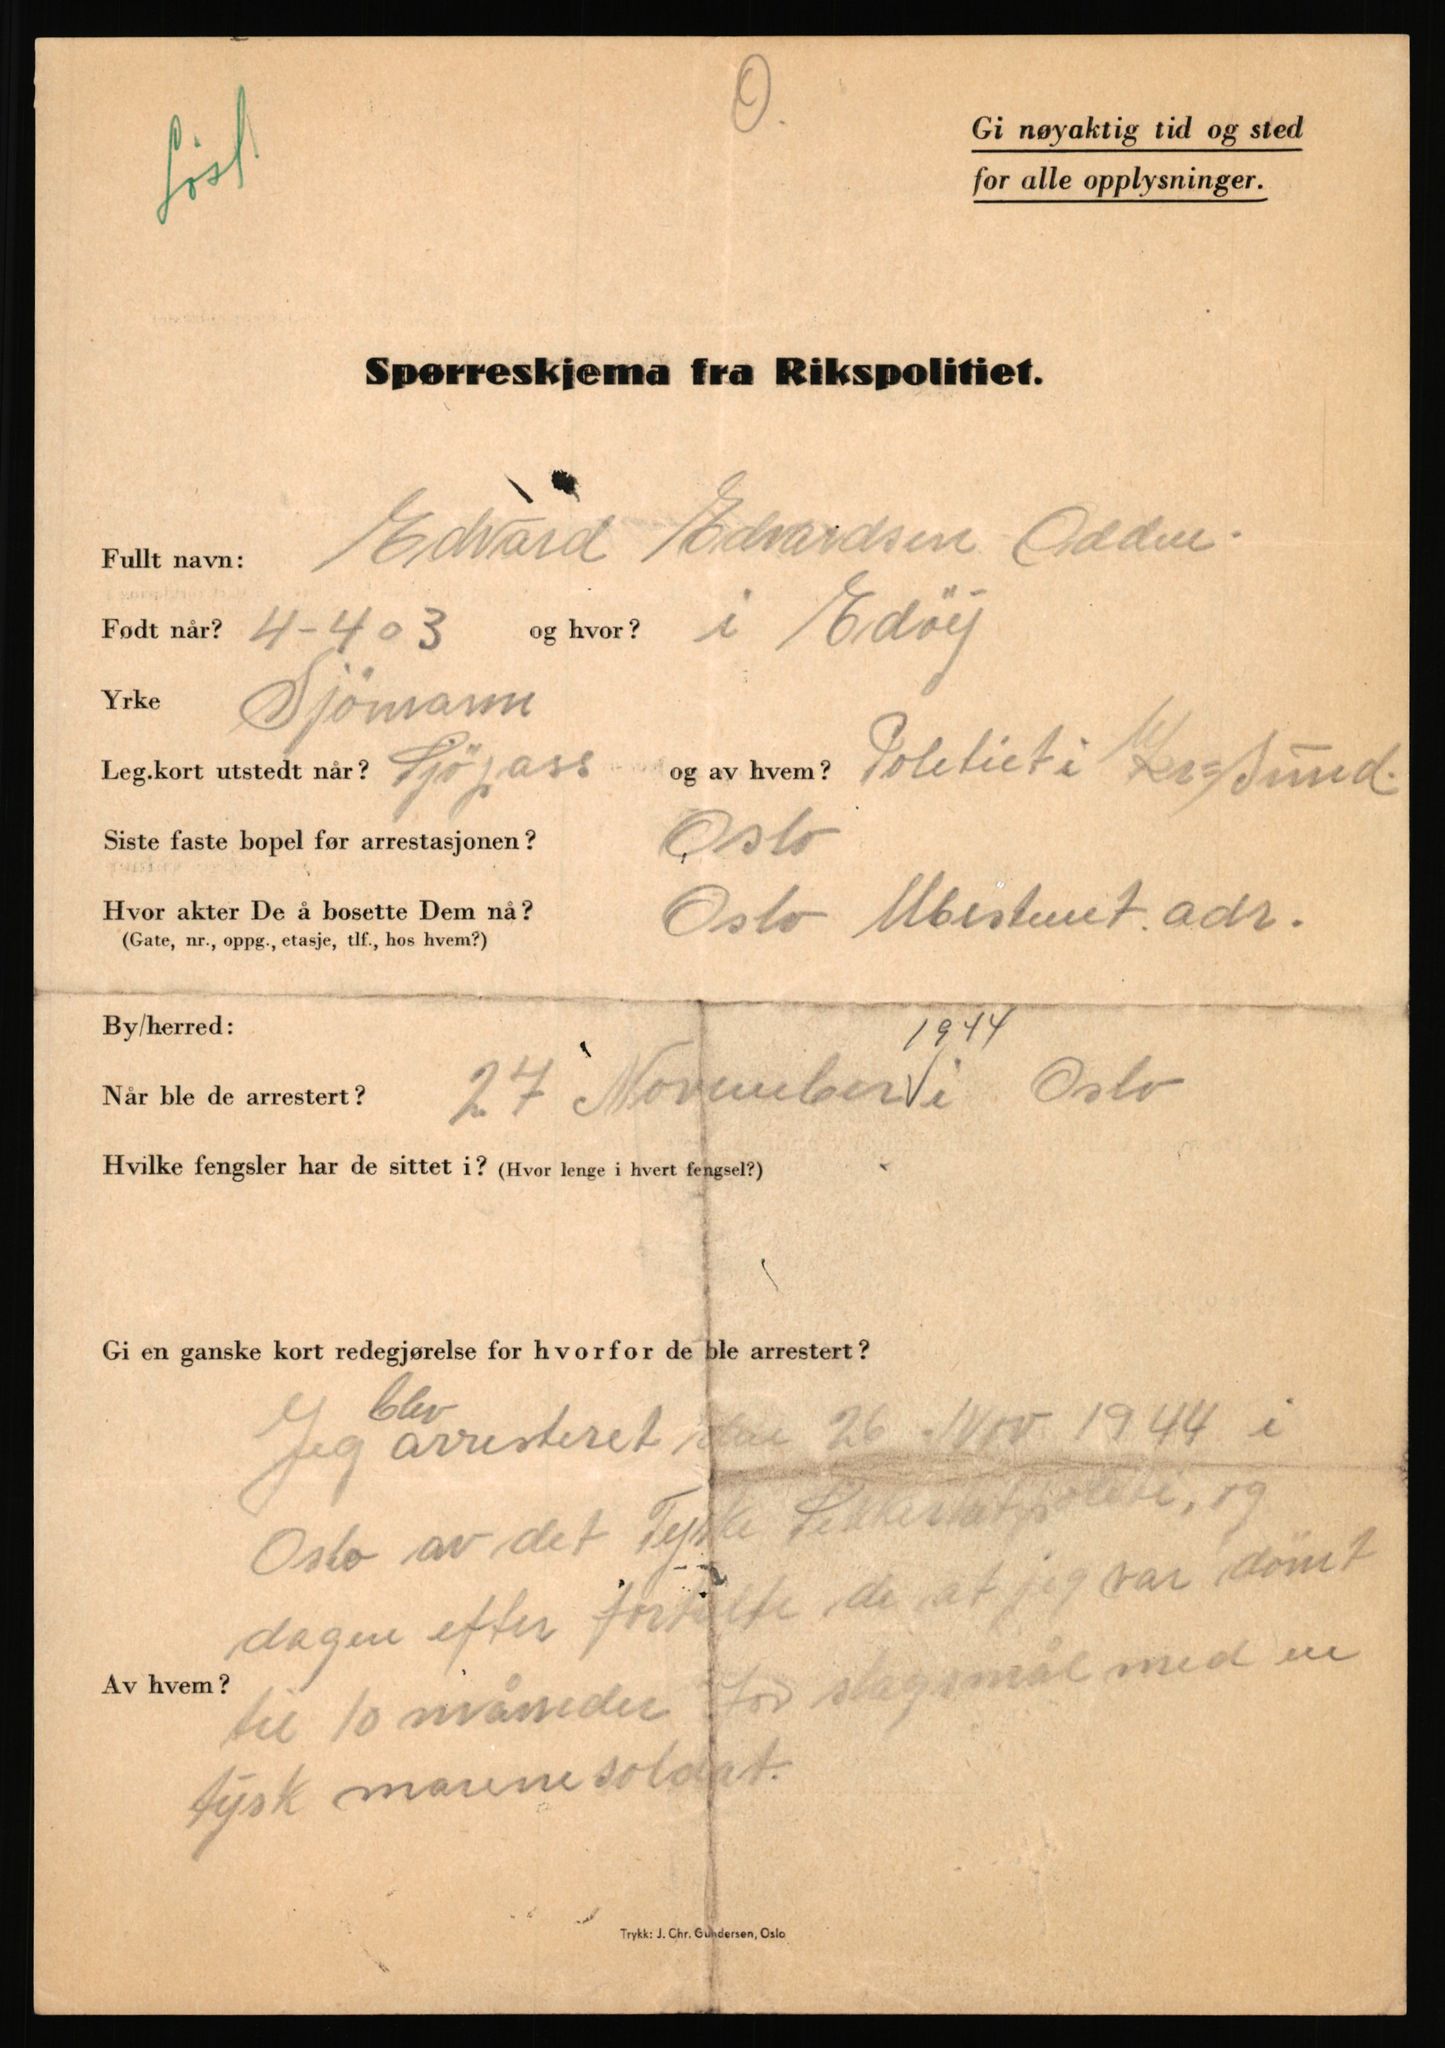 O.
Løsl.
Gi nøyaktig tid og sted
for alle opplysninger.
Spørreskjema fra Rikspolitiet.
Fullt navn: Edvard Edvardsen Odden.
Født når? 4-4 03 og hvor? i Edöy
Yrke Sjömann
Leg.kort utstedt når? Sjöpass og av hvem? Politiet i Kr=Sund.
Siste faste bopel før arrestasjonen? Oslo
Hvor akter De å bosette Dem nå? Oslo Ubestemt. adr.
(Gate, nr., oppg., etasje, tlf., hos hvem?)
By/herred:
1944
Når ble de arrestert? 27 November i Oslo
Hvilke fengsler har de sittet i? (Hvor lenge i hvert fengsel?)
Gi en ganske kort redegjørelse for hvorfor de ble arrestert?
blev
Jeg arresteret den 26 Nov 1944 i
Oslo av det Tyske Sikkerhetspoleti, og
dagen efter fortalte de at jeg var dömt
Av hvem?
til 10 måneder for slagsmål med en
tysk marenesoldat.
Trykk: J. Chr. Gundersen, Oslo